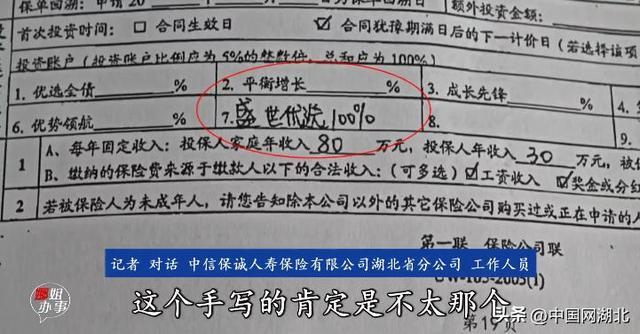 保单回溯：申请20
合同生效日
额外投资金额：
首次投资时间：□合同生效日 ☑合同犹豫期满日后的下一计价日（若选择该项
投资账户（投资账户比例应为5%的整数倍，总和应为100%）
1. 优选全债 % 2. 平衡增长 % 3. 成长先锋 % 4.
6. 优势领航 % 7. 盛世优选100% 8.
1 A、每年固定收入：投保人家庭年收入 80 万元，投保人年收入 30 万元，被
B、缴纳的保险费来源于缴款人以下的合法收入：（可多选）☑工资收入 ☑奖金或分红
2 若被保险人为未成年人，请您告知除本公司以外的其它保险公司购买过或正在申请的人
第一联 保险公司联
记者 对话 中信保诚人寿保险有限公司湖北省分公司 工作人员
姐
办事
这个手写的肯定是不太那个
头条 @中国网湖北